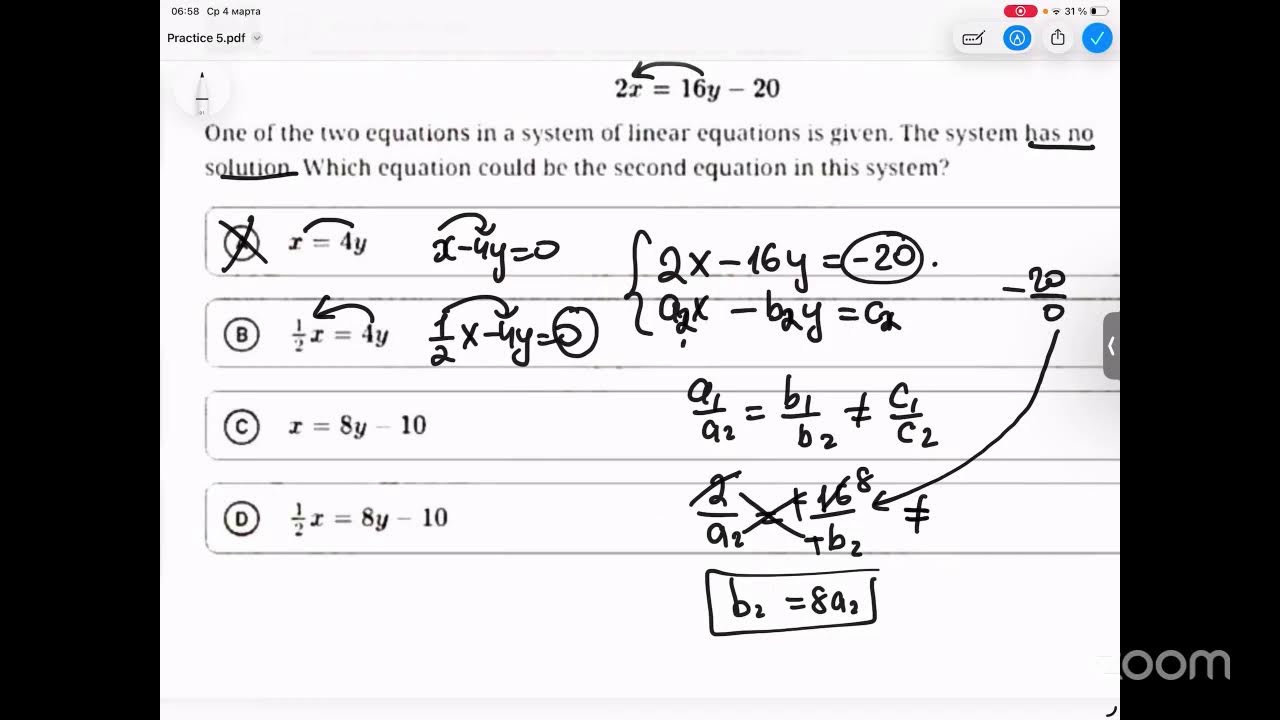 06:58 Ср 4 марта
31 %
Practice 5.pdf
2x = 16y − 20
One of the two equations in a system of linear equations is given. The system has no
solution. Which equation could be the second equation in this system?
A x = 4y x-4y=0
{ 2x-16y=-20.
a₂x - b₂y = c₂
-20/0
B ½x = 4y ½x-4y=0
a₁/a₂ = b₁/b₂ ≠ c₁/c₂
C x = 8y − 10
2/a₂ = +16/+b₂ 8 ≠
D ½x = 8y − 10
b₂ = 8a₂
zoom